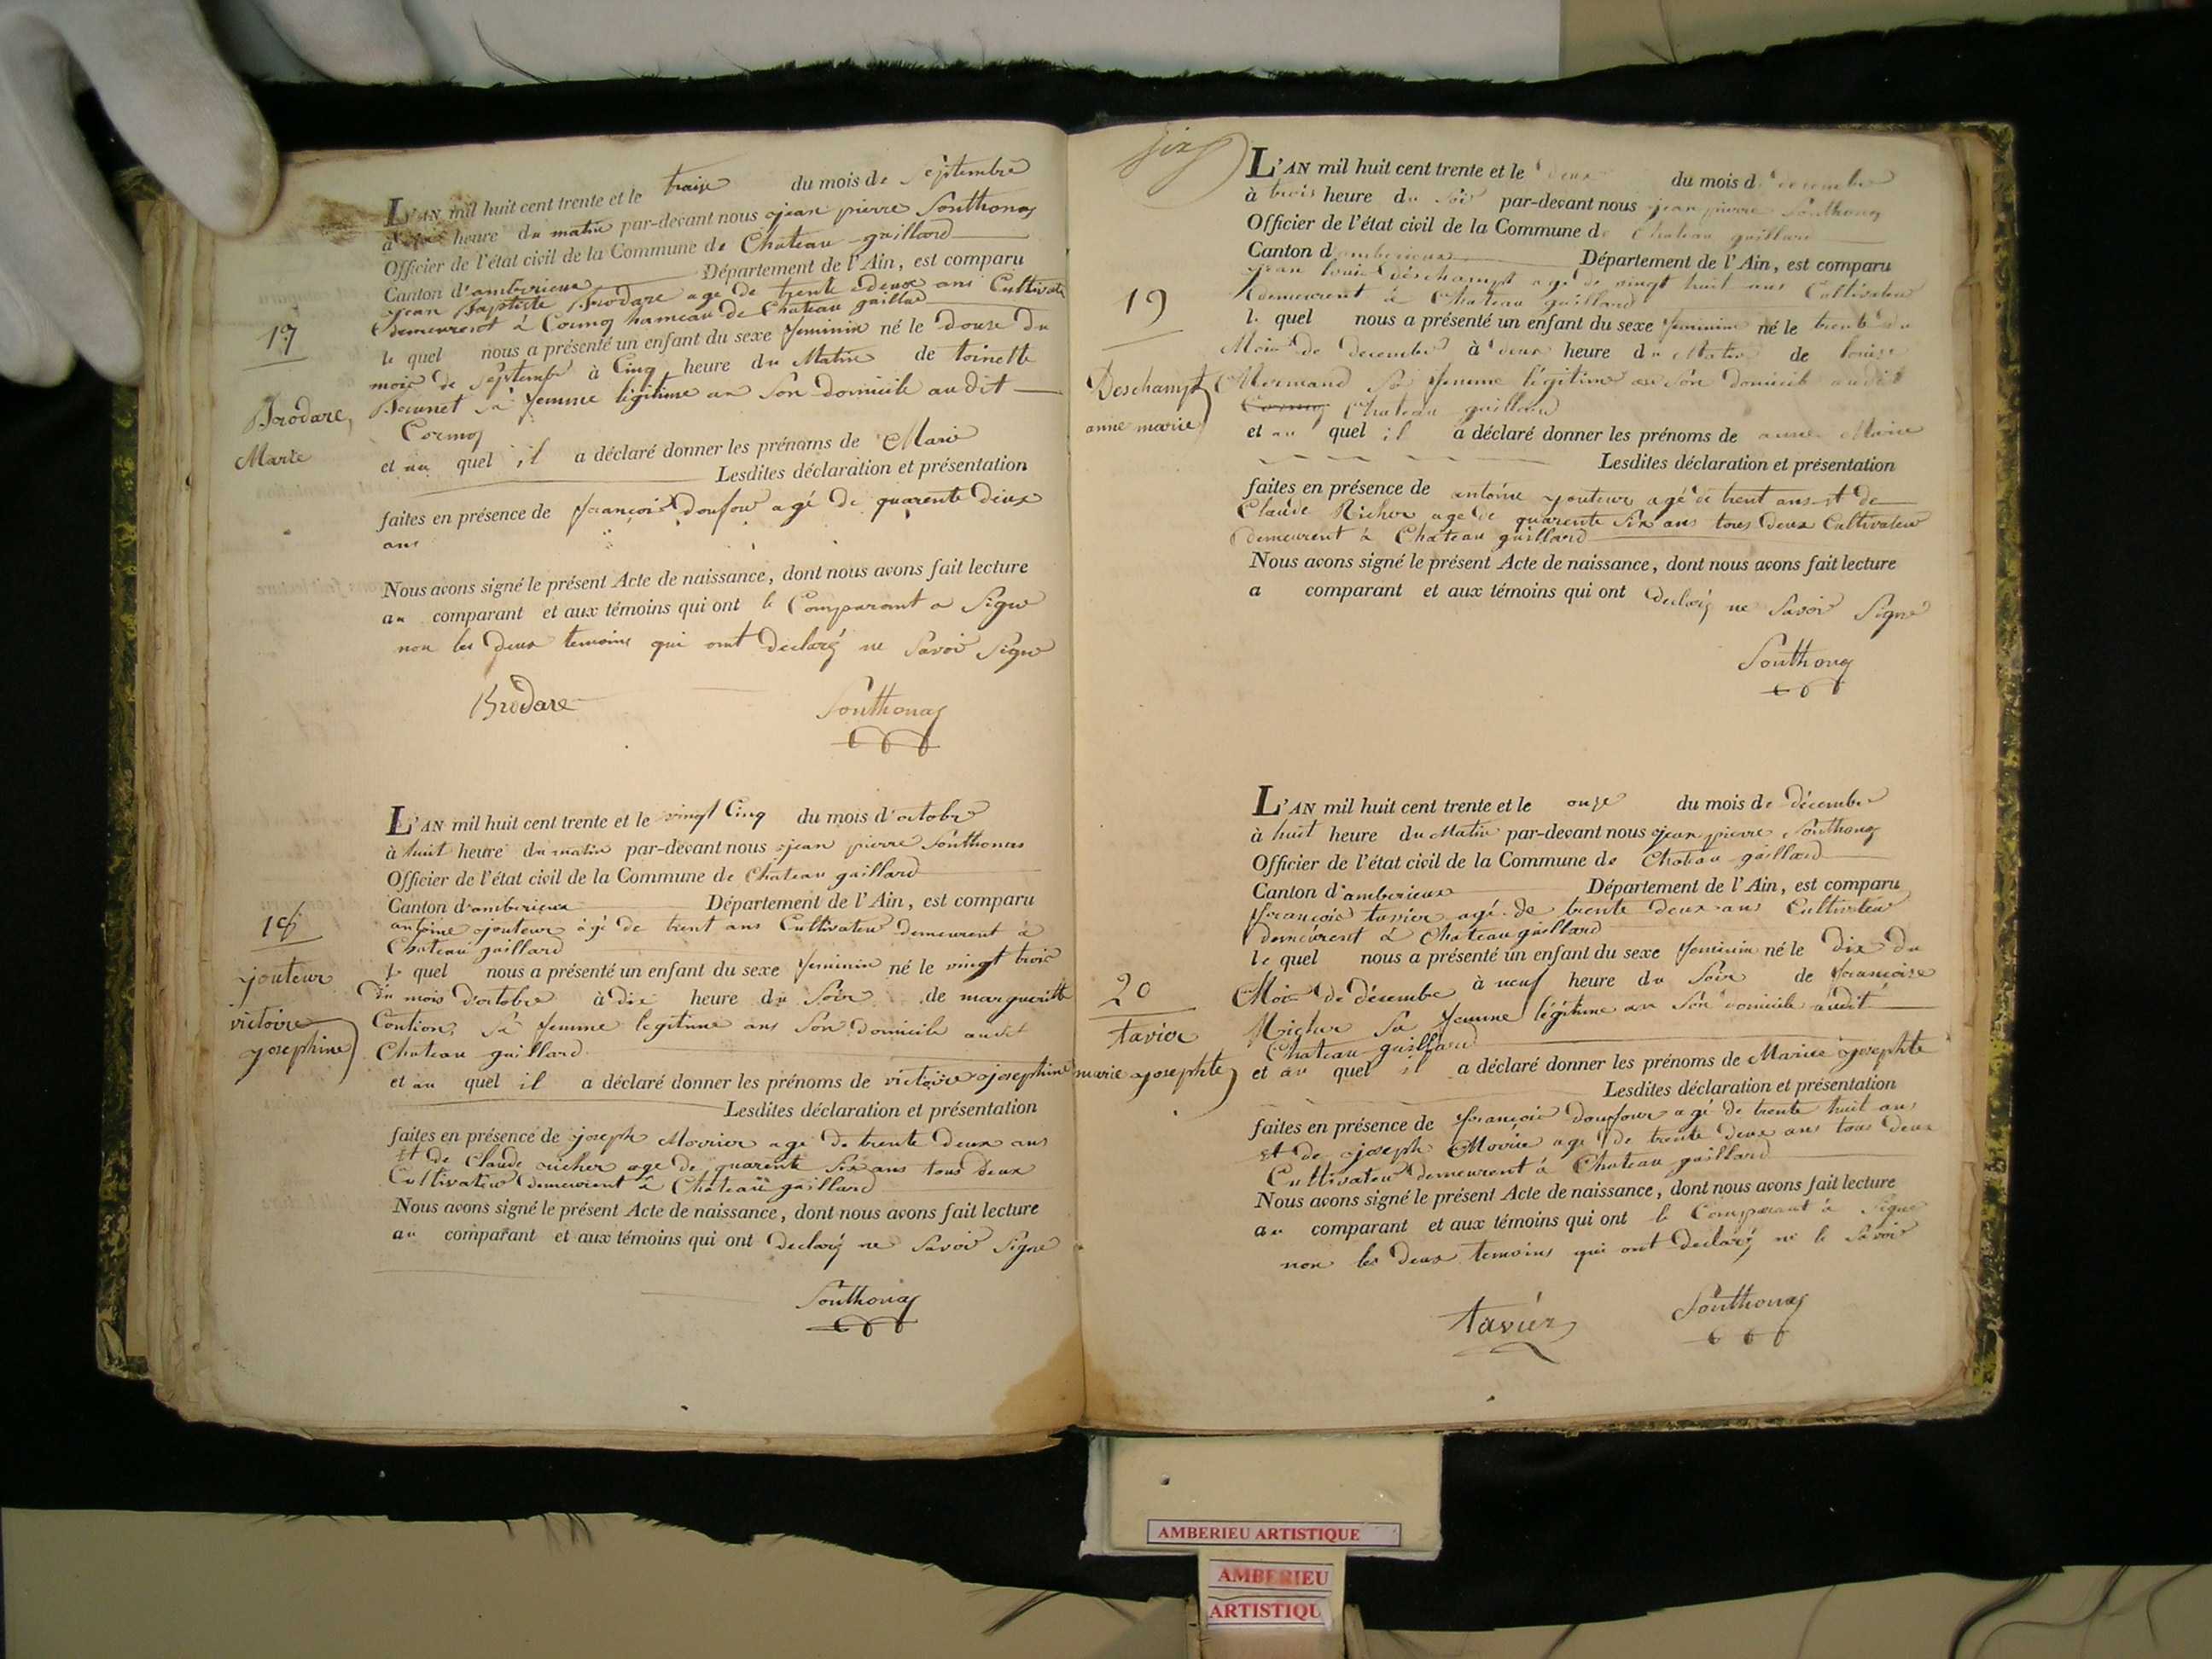 L'AN mil huit cent trente et le traise du mois de septembre
à heure du matin par-devant nous jean pierre Southonaz
Officier de l'état civil de la Commune de Chateau gaillard
Canton d'amberieux Département de l'Ain, est comparu
jean Baptiste Brodare age de trente deux ans Cultivateu
demeurent à Cormoz hameau de Chateau gaillad
17
le quel nous a présenté un enfant du sexe feminin né le douse du
mois de septembr à Cinq heure du Matin de toinette
Brunet sa femme légitime an son domicile audit
Cormoz
Brodare,
Marie
et au quel il a déclaré donner les prénoms de Marie
Lesdites déclaration et présentation
faites en présence de françois doufour agé de quarente deux
ans
Nous avons signé le présent Acte de naissance, dont nous avons fait lecture
au comparant et aux témoins qui ont le Comparant a Signe
non les deux temoins qui ont declaré ne savoir signe
Brodare Southonaz
L'AN mil huit cent trente et le vingt Cinq du mois d'octobre
à huit heure du matin par-devant nous jean pierre Southonas
Officier de l'état civil de la Commune de Chateau gaillard
Canton d'amberieux Département de l'Ain, est comparu
antoine jouteur agé de trent ans Cultivateu demeurent à
Chateau gaillard
18
jouteur
victoire
josephine
le quel nous a présenté un enfant du sexe feminin né le vingt trois
du mois d'octobre à dix heure du Soir de margueritte
sa femme legitime ans son domicile audit
Chateau gaillard
et au quel il a déclaré donner les prénoms de victoire josephine
Lesdites déclaration et présentation
faites en présence de joseph Movrier age de trente deux ans
et de Claude richer age de quarente six ans tous deux
Cultivateur demeurent à Chateau gaillard
Nous avons signé le présent Acte de naissance, dont nous avons fait lecture
au comparant et aux témoins qui ont declaré ne savoir signe
Southonaz
six
L'AN mil huit cent trente et le deux du mois de decembre
à trois heure du soir par-devant nous jean pierre Southonaz
Officier de l'état civil de la Commune de Chateau gaillard
Canton d'amberieux Département de l'Ain, est comparu
jean louis deschampt agé de vingt huit ans Cultivateu
demeurent à Chateau gaillard
19
Deschampt
anne marie
le quel nous a présenté un enfant du sexe feminin né le trente du
Mois de decembre à deux heure du Matin de louise
Mermand sa femme légitime an son domicile audit
Chateau gaillard
et au quel il a déclaré donner les prénoms de anne Marie
Lesdites déclaration et présentation
faites en présence de antoine jouteur agé de trent ans et de
Claude Richer age de quarente six ans tous deux Cultivateur
demeurent à Chateau gaillard
Nous avons signé le présent Acte de naissance, dont nous avons fait lecture
a comparant et aux témoins qui ont declaré ne savoir signé
Southonaz
L'AN mil huit cent trente et le onze du mois de décembre
à huit heure du Matin par-devant nous jean pierre Southonaz
Officier de l'état civil de la Commune de Chateau gaillard
Canton d'amberieux Département de l'Ain, est comparu
françois tavier agé de trente deux ans Cultivateur
demeurent à Chateau gaillard
20
tavier
marie josephte
le quel nous a présenté un enfant du sexe feminin né le dix du
Mois de décembre à neuf heure du Soir de françoise
Richer sa femme légitime an son domicile audit
Chateau gaillard
et au quel il a déclaré donner les prénoms de Marie josephte
Lesdites déclaration et présentation
faites en présence de françois doufour agé de trente huit ans
et de joseph Movrier age de trente deux ans tous deux
Cultivateur demeurent à Chateau gaillard
Nous avons signé le présent Acte de naissance, dont nous avons fait lecture
au comparant et aux témoins qui ont le Comparant à Signe
non les deux temoins qui ont declaré ne le savoir
tavier Southonaz
AMBERIEU ARTISTIQUE
AMBERIEU
ARTISTIQU